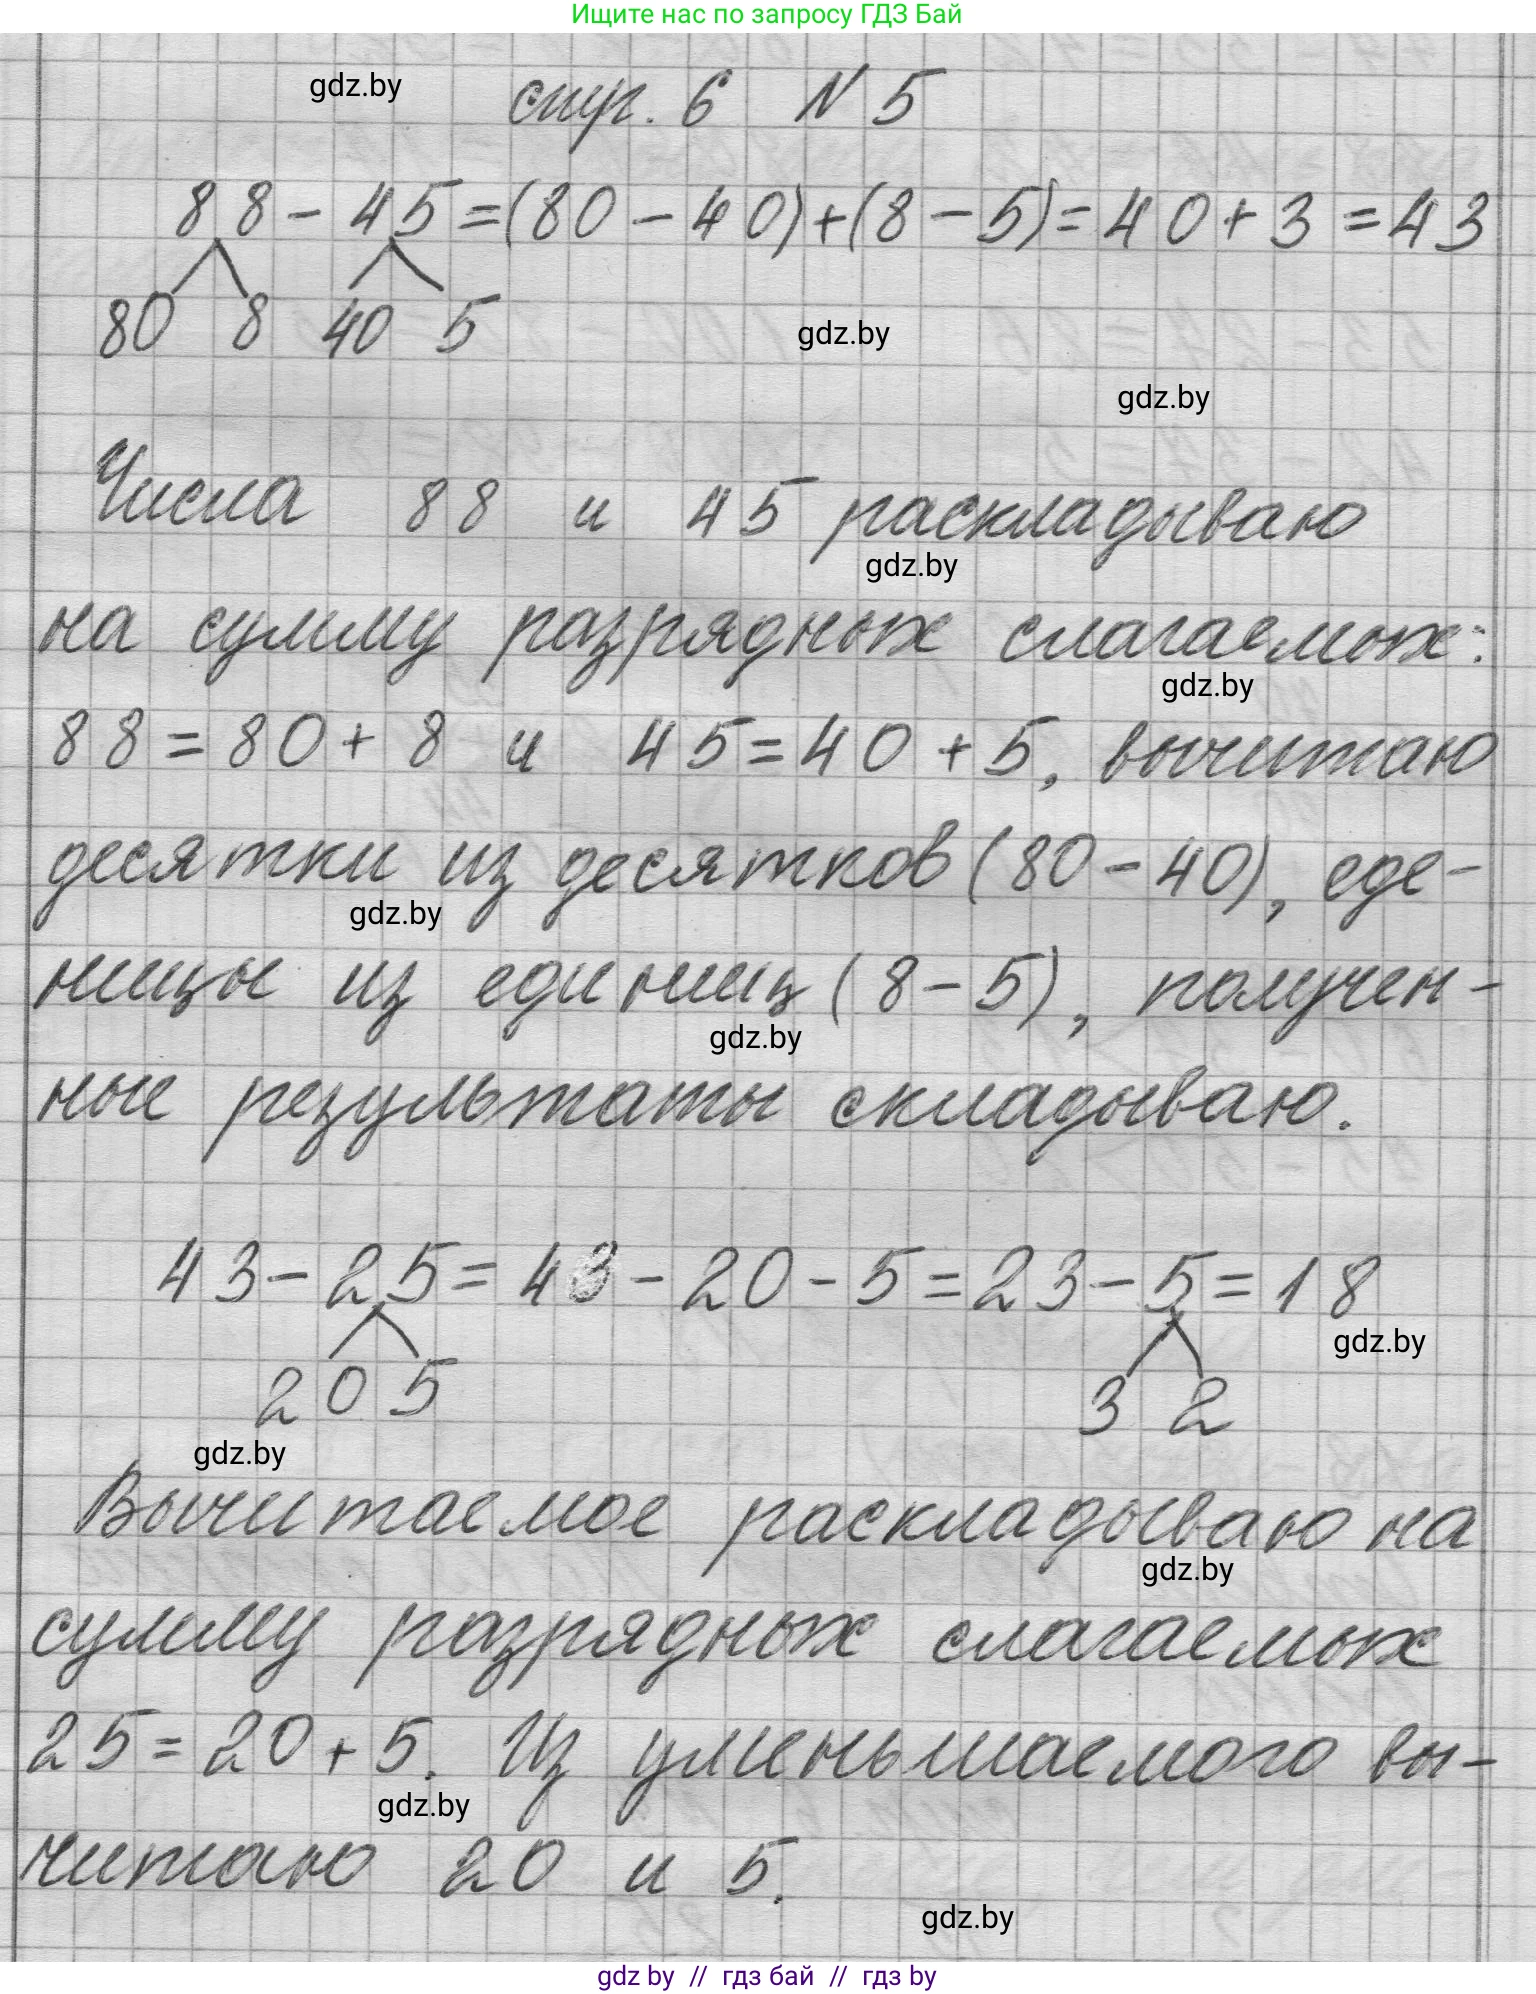 Ищите нас по запросу ГДЗ Бай
gdz.by
стр. 6 N 5
88 - 45 = (80 - 40) + (8 - 5) = 40 + 3 = 43
80 8 40 5
gdz.by
gdz.by
Числа 88 и 45 раскладываю
gdz.by
на сумму разрядных слагаемых:
gdz.by
88 = 80 + 8 и 45 = 40 + 5, вычитаю
десятки из десятков (80 - 40), еде-
gdz.by
ницы из единиц (8 - 5), получен-
gdz.by
ные результаты складываю.
43 - 25 = 43 - 20 - 5 = 23 - 5 = 18
gdz.by
20 5 3 2
gdz.by
Вычитаемое раскладываю на
gdz.by
сумму разрядных слагаемых
25 = 20 + 5. Из уменьшаемого вы-
gdz.by
читаю 20 и 5.
gdz.by
gdz by // гдз бай // гдз by